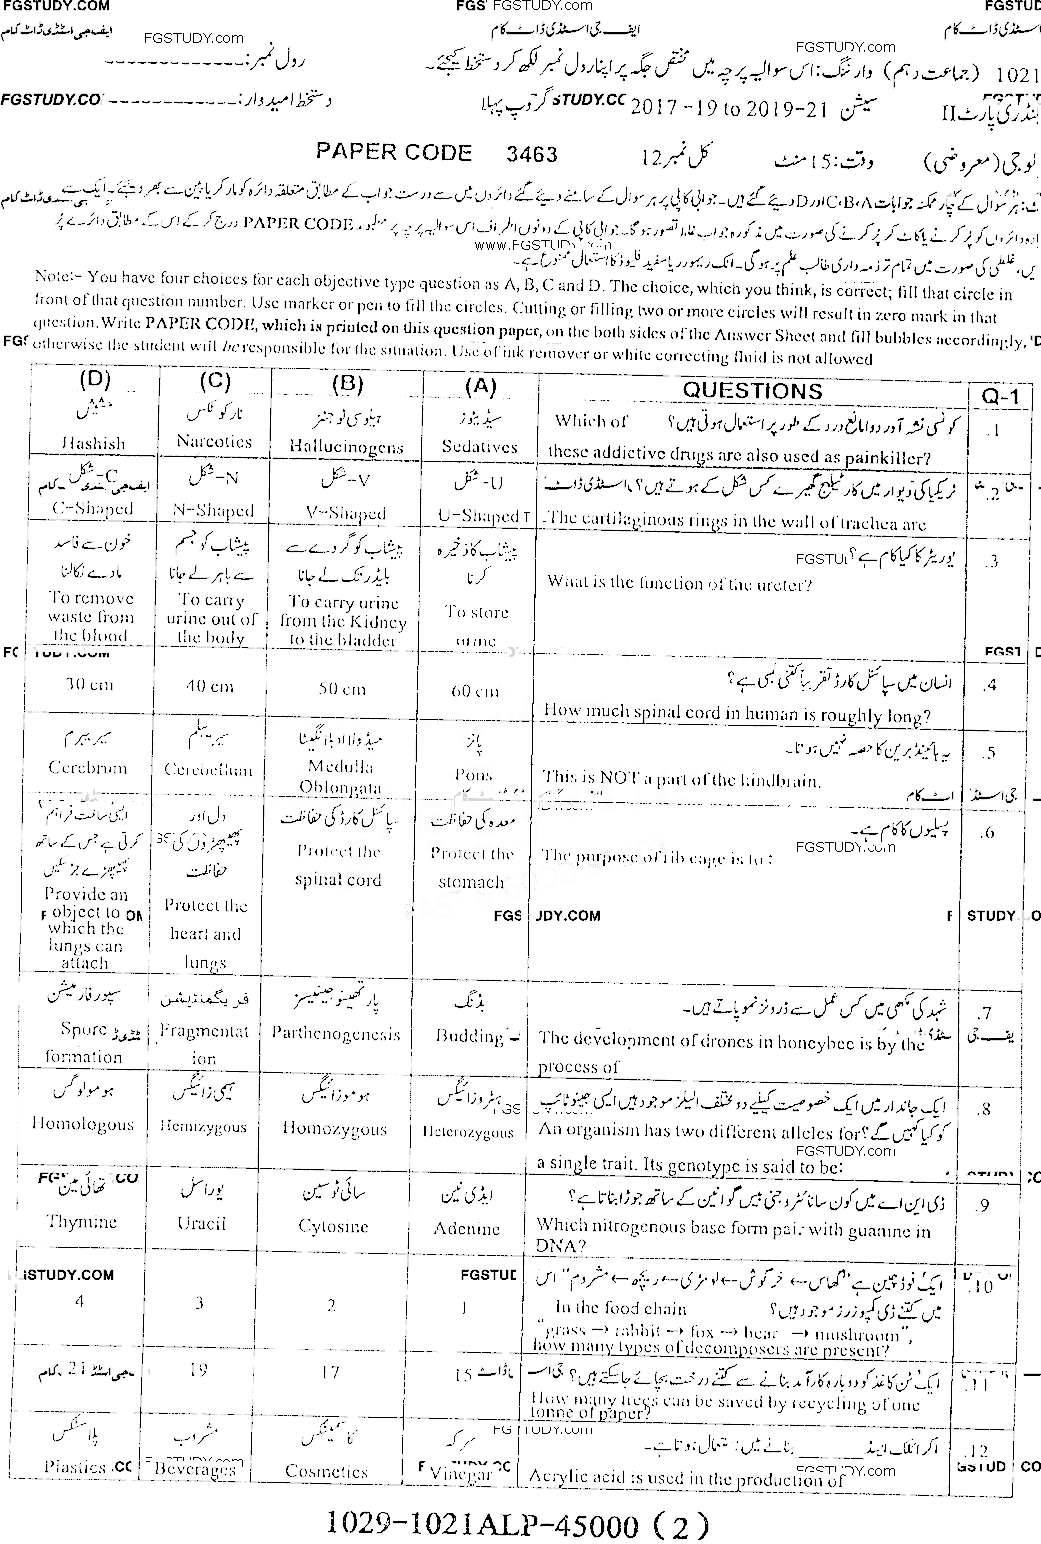 FGSTUDY.COM FGS FGSTUD
ایف جی اسٹڈی ڈاٹ کام ایف جی اسٹڈی ڈاٹ کام اسٹڈی ڈاٹ کام
FGSTUDY.com FGSTUDY.com
1021 (جماعت دہم) وارننگ: اس سوالیہ پرچہ میں مختص جگہ پر اپنا رول نمبر لکھ کر دستخط کیجئے۔ رول نمبر: -------------
پارٹ II سیشن 2017-19 to 2019-21 گروپ پہلا STUDY.CO دستخط امیدوار: ------------ FGSTUDY.CO
(معروضی) وقت: 15 منٹ کل نمبر 12 PAPER CODE 3463
ہر سوال کے چار ممکنہ جوابات A، B، C اور D دیئے گئے ہیں۔ جوابی کاپی پر ہر سوال کے سامنے دیئے گئے دائروں میں سے درست جواب کے مطابق متعلقہ دائرہ کو مارکر یا پین سے بھر دیجئے۔ ایک سے
دائروں کو پُر کرنے یا کاٹ کر پُر کرنے کی صورت میں مذکورہ جواب غلط تصور ہوگا۔ جوابی کاپی کے دونوں اطراف اس سوالیہ پرچہ پر مطبوعہ PAPER CODE درج کر کے اس کے مطابق دائرے پُر
www.FGSTUDY.com
غلطی کی صورت میں تمام تر ذمہ داری طالب علم پر ہوگی۔ انک ریموور یا سفید فلیوڈ کا استعمال ممنوع ہے۔
Note:- You have four choices for each objective type question as A, B, C and D. The choice, which you think, is correct; fill that circle in
front of that question number. Use marker or pen to fill the circles. Cutting or filling two or more circles will result in zero mark in that
question. Write PAPER CODE, which is printed on this question paper, on the both sides of the Answer Sheet and fill bubbles accordingly,
otherwise the student will be responsible for the situation. Use of ink remover or white correcting fluid is not allowed
(D) (C) (B) (A) QUESTIONS Q-1
نارکوٹکس ہیلوسی نوجنز سیڈیٹوز Which of کونسی نشہ آور دوا مانع درد کے طور پر استعمال ہوتی ہیں؟ .1
Hashish Narcotics Hallucinogens Sedatives these addictive drugs are also used as painkiller?
C-شکل N-شکل V-شکل U-شکل ٹریکیا کی دیوار میں کارٹیلیج گھیرے کس شکل کے ہوتے ہیں؟ .2
C-Shaped N-Shaped V-Shaped U-Shaped The cartilaginous rings in the wall of trachea are
خون سے فاسد پیشاب کو جسم پیشاب کو گردے سے پیشاب کا ذخیرہ یوریٹر کا کیا کام ہے؟ FGSTU .3
مادے نکالنا سے باہر لے جانا بلیڈر تک لے جانا کرنا Waat is the function of the ureter?
To remove To carry To carry urine To store
waste from urine out of from the Kidney urine
the blood the body to the bladder
30 cm 40 cm 50 cm 60 cm انسان میں سپائنل کارڈ تقریباً کتنی لمبی ہے؟ .4
How much spinal cord in human is roughly long?
سیریبرم سیریبیلم میڈولا اوبلانگیٹا پانز یہ ہائنڈ برین کا حصہ نہیں ہوتا۔ .5
Cerebrum Cerebellum Medulla Pons This is NOT a part of the hindbrain.
Oblongata
ایسی ساخت فراہم دل اور سپائنل کارڈ کی حفاظت معدہ کی حفاظت پسلیوں کا کام ہے۔ .6
کرتی ہے جس کے ساتھ پھیپھڑوں کی Protect the Protect the The purpose of rib cage is to : FGSTUDY.com
پھیپھڑے جڑ سکیں حفاظت spinal cord stomach
Provide an Protect the
object to heart and FGS UDY.COM STUDY
which the lungs
lungs can
attach
سپور فارمیشن فریگمنٹیشن پارتھینو جینیسز بڈنگ شہد کی مکھی میں کس عمل سے ڈرونز نمو پاتے ہیں۔ .7
Spore Fragmentat Parthenogenesis Budding The development of drones in honeybee is by the
formation ion process of
ہومولوگس ہیمی زائیگس ہوموزائیگس ہیٹروزائیگس ایک جاندار میں ایک خصوصیت کیلئے دو مختلف الیلز موجود ہیں ایسی جینو ٹائپ .8
Homologous Hemizygous Homozygous Heterozygous An organism has two different alleles for کو کیا کہیں گے؟
FGSTUDY.com
a single trait. Its genotype is said to be:
تھائی مین یوراسل سائی ٹوسین ایڈی نین ڈی این اے میں کون سا نائٹروجنی بیس گوانین کے ساتھ جوڑا بناتا ہے؟ .9
Thymine Uracil Cytosine Adenine Which nitrogenous base form pair with guanine in
DNA?
STUDY.COM FGSTUD ایک فوڈ چین ہے "گھاس ← خرگوش ← لومڑی ← ریچھ ← مشروم" اس .10
4 3 2 1 In the food chain میں کتنے ڈی کمپوزرز موجود ہیں؟
"grass → rabbit → fox → bear → mushroom",
how many types of decomposers are present?
21 19 17 15 ایک ٹن کاغذ کو دوبارہ کارآمد بنانے سے کتنے درخت بچائے جا سکتے ہیں؟ .11
How many trees can be saved by recycling of one
tonne of paper?
FG TUDY.com
پلاسٹکس مشروب کاسمیٹکس سرکہ اکرائلک ایسڈ ______ بنانے میں استعمال ہوتا ہے۔ .12
Plastics Beverages Cosmetics Vinegar Acrylic acid is used in the production of FGSTUDY.com
1029-1021ALP-45000 (2)